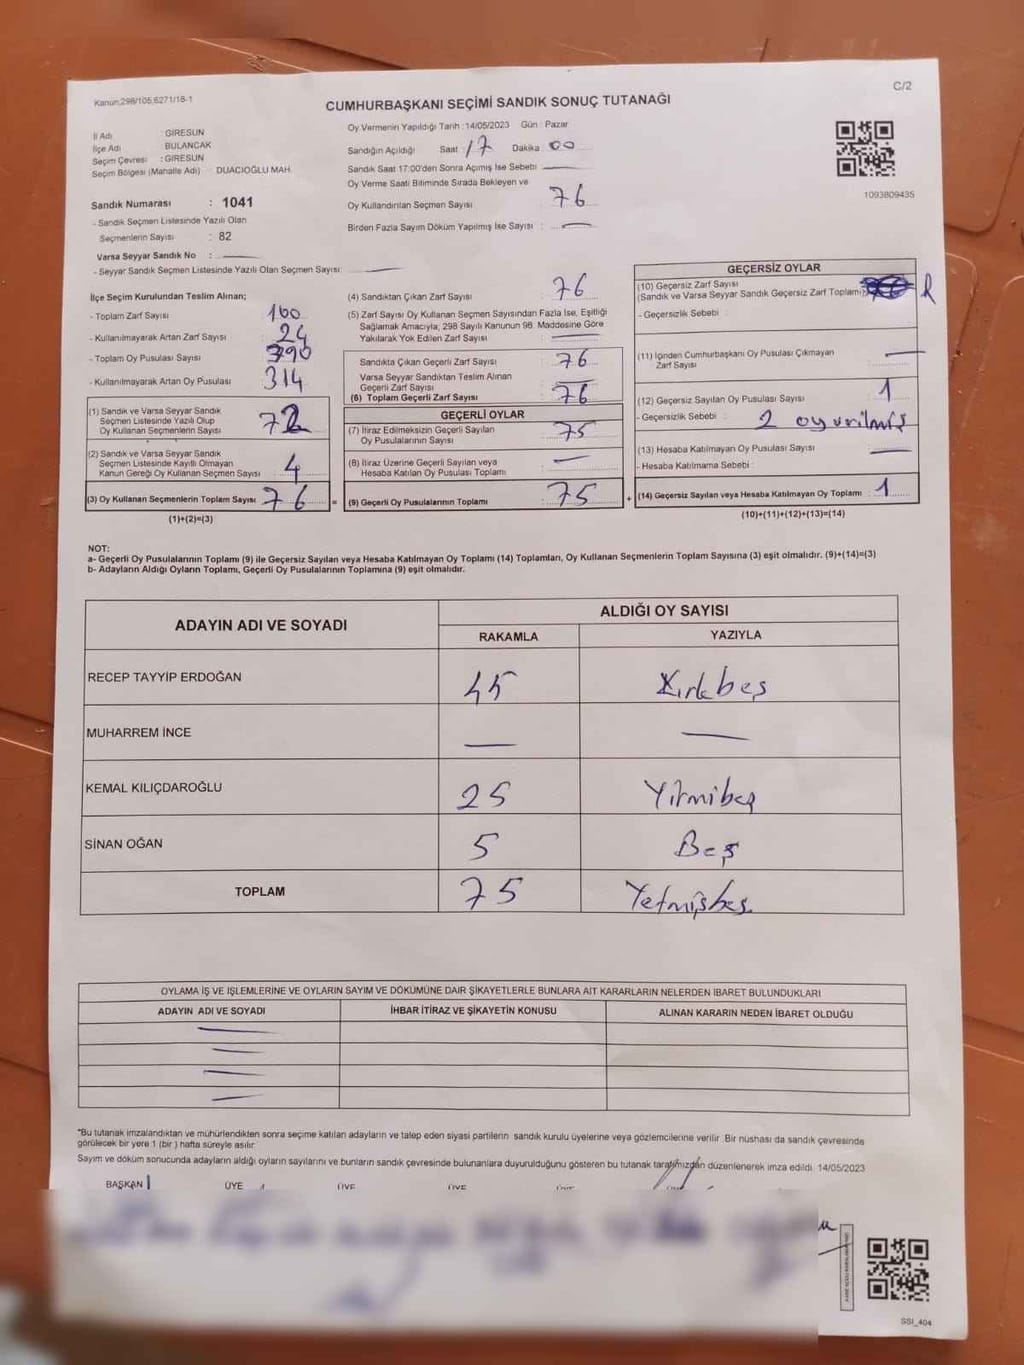 Kanun,298/105,6271/18-1
C/2
CUMHURBAŞKANI SEÇİMİ SANDIK SONUÇ TUTANAĞI
İl Adı : GİRESUN
İlçe Adı BULANCAK
Seçim Çevresi : GİRESUN
Seçim Bölgesi (Mahalle Adı) : DUACIOĞLU MAH.
Sandık Numarası : 1041
- Sandık Seçmen Listesinde Yazılı Olan
Seçmenlerin Sayısı : 82
Varsa Seyyar Sandık No :
- Seyyar Sandık Seçmen Listesinde Yazılı Olan Seçmen Sayısı:
Oy Vermenin Yapıldığı Tarih :14/05/2023 Gün : Pazar
Sandığın Açıldığı Saat : 17 Dakika : 00
Sandık Saat 17:00'den Sonra Açımış İse Sebebi :
Oy Verme Saati Bitiminde Sırada Bekleyen ve
Oy Kullandırılan Seçmen Sayısı : 76
Birden Fazla Sayım Döküm Yapılmış İse Sayısı :
1093809435
İlçe Seçim Kurulundan Teslim Alınan;
- Toplam Zarf Sayısı 160
- Kullanılmayarak Artan Zarf Sayısı 24
- Toplam Oy Pusulası Sayısı 390
- Kullanılmayarak Artan Oy Pusulası 314
(1) Sandık ve Varsa Seyyar Sandık
Seçmen Listesinde Yazılı Olup
Oy Kullanan Seçmenlerin Sayısı 72
(2) Sandık ve Varsa Seyyar Sandık
Seçmen Listesinde Kayıtlı Olmayan
Kanun Gereği Oy Kullanan Seçmen Sayısı 4
(3) Oy Kullanan Seçmenlerin Toplam Sayısı 76 =
(1)+(2)=(3)
(4) Sandıktan Çıkan Zarf Sayısı : 76
(5) Zarf Sayısı Oy Kullanan Seçmen Sayısından Fazla İse, Eşitliği
Sağlamak Amacıyla; 298 Sayılı Kanunun 98. Maddesine Göre
Yakılarak Yok Edilen Zarf Sayısı :
Sandıkta Çıkan Geçerli Zarf Sayısı : 76
Varsa Seyyar Sandıktan Teslim Alınan
Geçerli Zarf Sayısı
(6) Toplam Geçerli Zarf Sayısı : 76
GEÇERLİ OYLAR
(7) İtiraz Edilmeksizin Geçerli Sayılan
Oy Pusulalarının Sayısı : 75
(8) İtiraz Üzerine Geçerli Sayılan veya
Hesaba Katılan Oy Pusulası Toplamı :
(9) Geçerli Oy Pusulalarının Toplamı : 75 +
GEÇERSİZ OYLAR
(10) Geçersiz Zarf Sayısı
(Sandık ve Varsa Seyyar Sandık Geçersiz Zarf Toplamı):
- Geçersizlik Sebebi :
(11) İçinden Cumhurbaşkanı Oy Pusulası Çıkmayan
Zarf Sayısı :
(12) Geçersiz Sayılan Oy Pusulası Sayısı : 1
- Geçersizlik Sebebi : 2 oy verilmiş
(13) Hesaba Katılmayan Oy Pusulası Sayısı :
- Hesaba Katılmama Sebebi :
(14) Geçersiz Sayılan veya Hesaba Katılmayan Oy Toplamı : 1
(10)+(11)+(12)+(13)=(14)
NOT:
a- Geçerli Oy Pusulalarının Toplamı (9) ile Geçersiz Sayılan veya Hesaba Katılmayan Oy Toplamı (14) Toplamları, Oy Kullanan Seçmenlerin Toplam Sayısına (3) eşit olmalıdır. (9)+(14)=(3)
b- Adayların Aldığı Oyların Toplamı, Geçerli Oy Pusulalarının Toplamına (9) eşit olmalıdır.
ADAYIN ADI VE SOYADI ALDIĞI OY SAYISI
RAKAMLA YAZIYLA
RECEP TAYYİP ERDOĞAN 45 Kırkbeş
MUHARREM İNCE
KEMAL KILIÇDAROĞLU 25 Yirmibeş
SİNAN OĞAN 5 Beş
TOPLAM 75 Yetmişbeş
OYLAMA İŞ VE İŞLEMLERİNE VE OYLARIN SAYIM VE DÖKÜMÜNE DAİR ŞİKAYETLERLE BUNLARA AİT KARARLARIN NELERDEN İBARET BULUNDUKLARI
ADAYIN ADI VE SOYADI İHBAR İTİRAZ VE ŞİKAYETİN KONUSU ALINAN KARARIN NEDEN İBARET OLDUĞU
*Bu tutanak imzalandıktan ve mühürlendikten sonra seçime katılan adayların ve talep eden siyasi partilerin sandık kurulu üyelerine veya gözlemcilerine verilir. Bir nüshası da sandık çevresinde
görülecek bir yere 1 (bir ) hafta süreyle asılır.
Sayım ve döküm sonucunda adayların aldığı oyların sayılarını ve bunların sandık çevresinde bulunanlara duyurulduğunu gösteren bu tutanak tarafımızdan düzenlenerek imza edildi. 14/05/2023
BAŞKAN ÜYE ÜYE ÜYE
SSİ_404